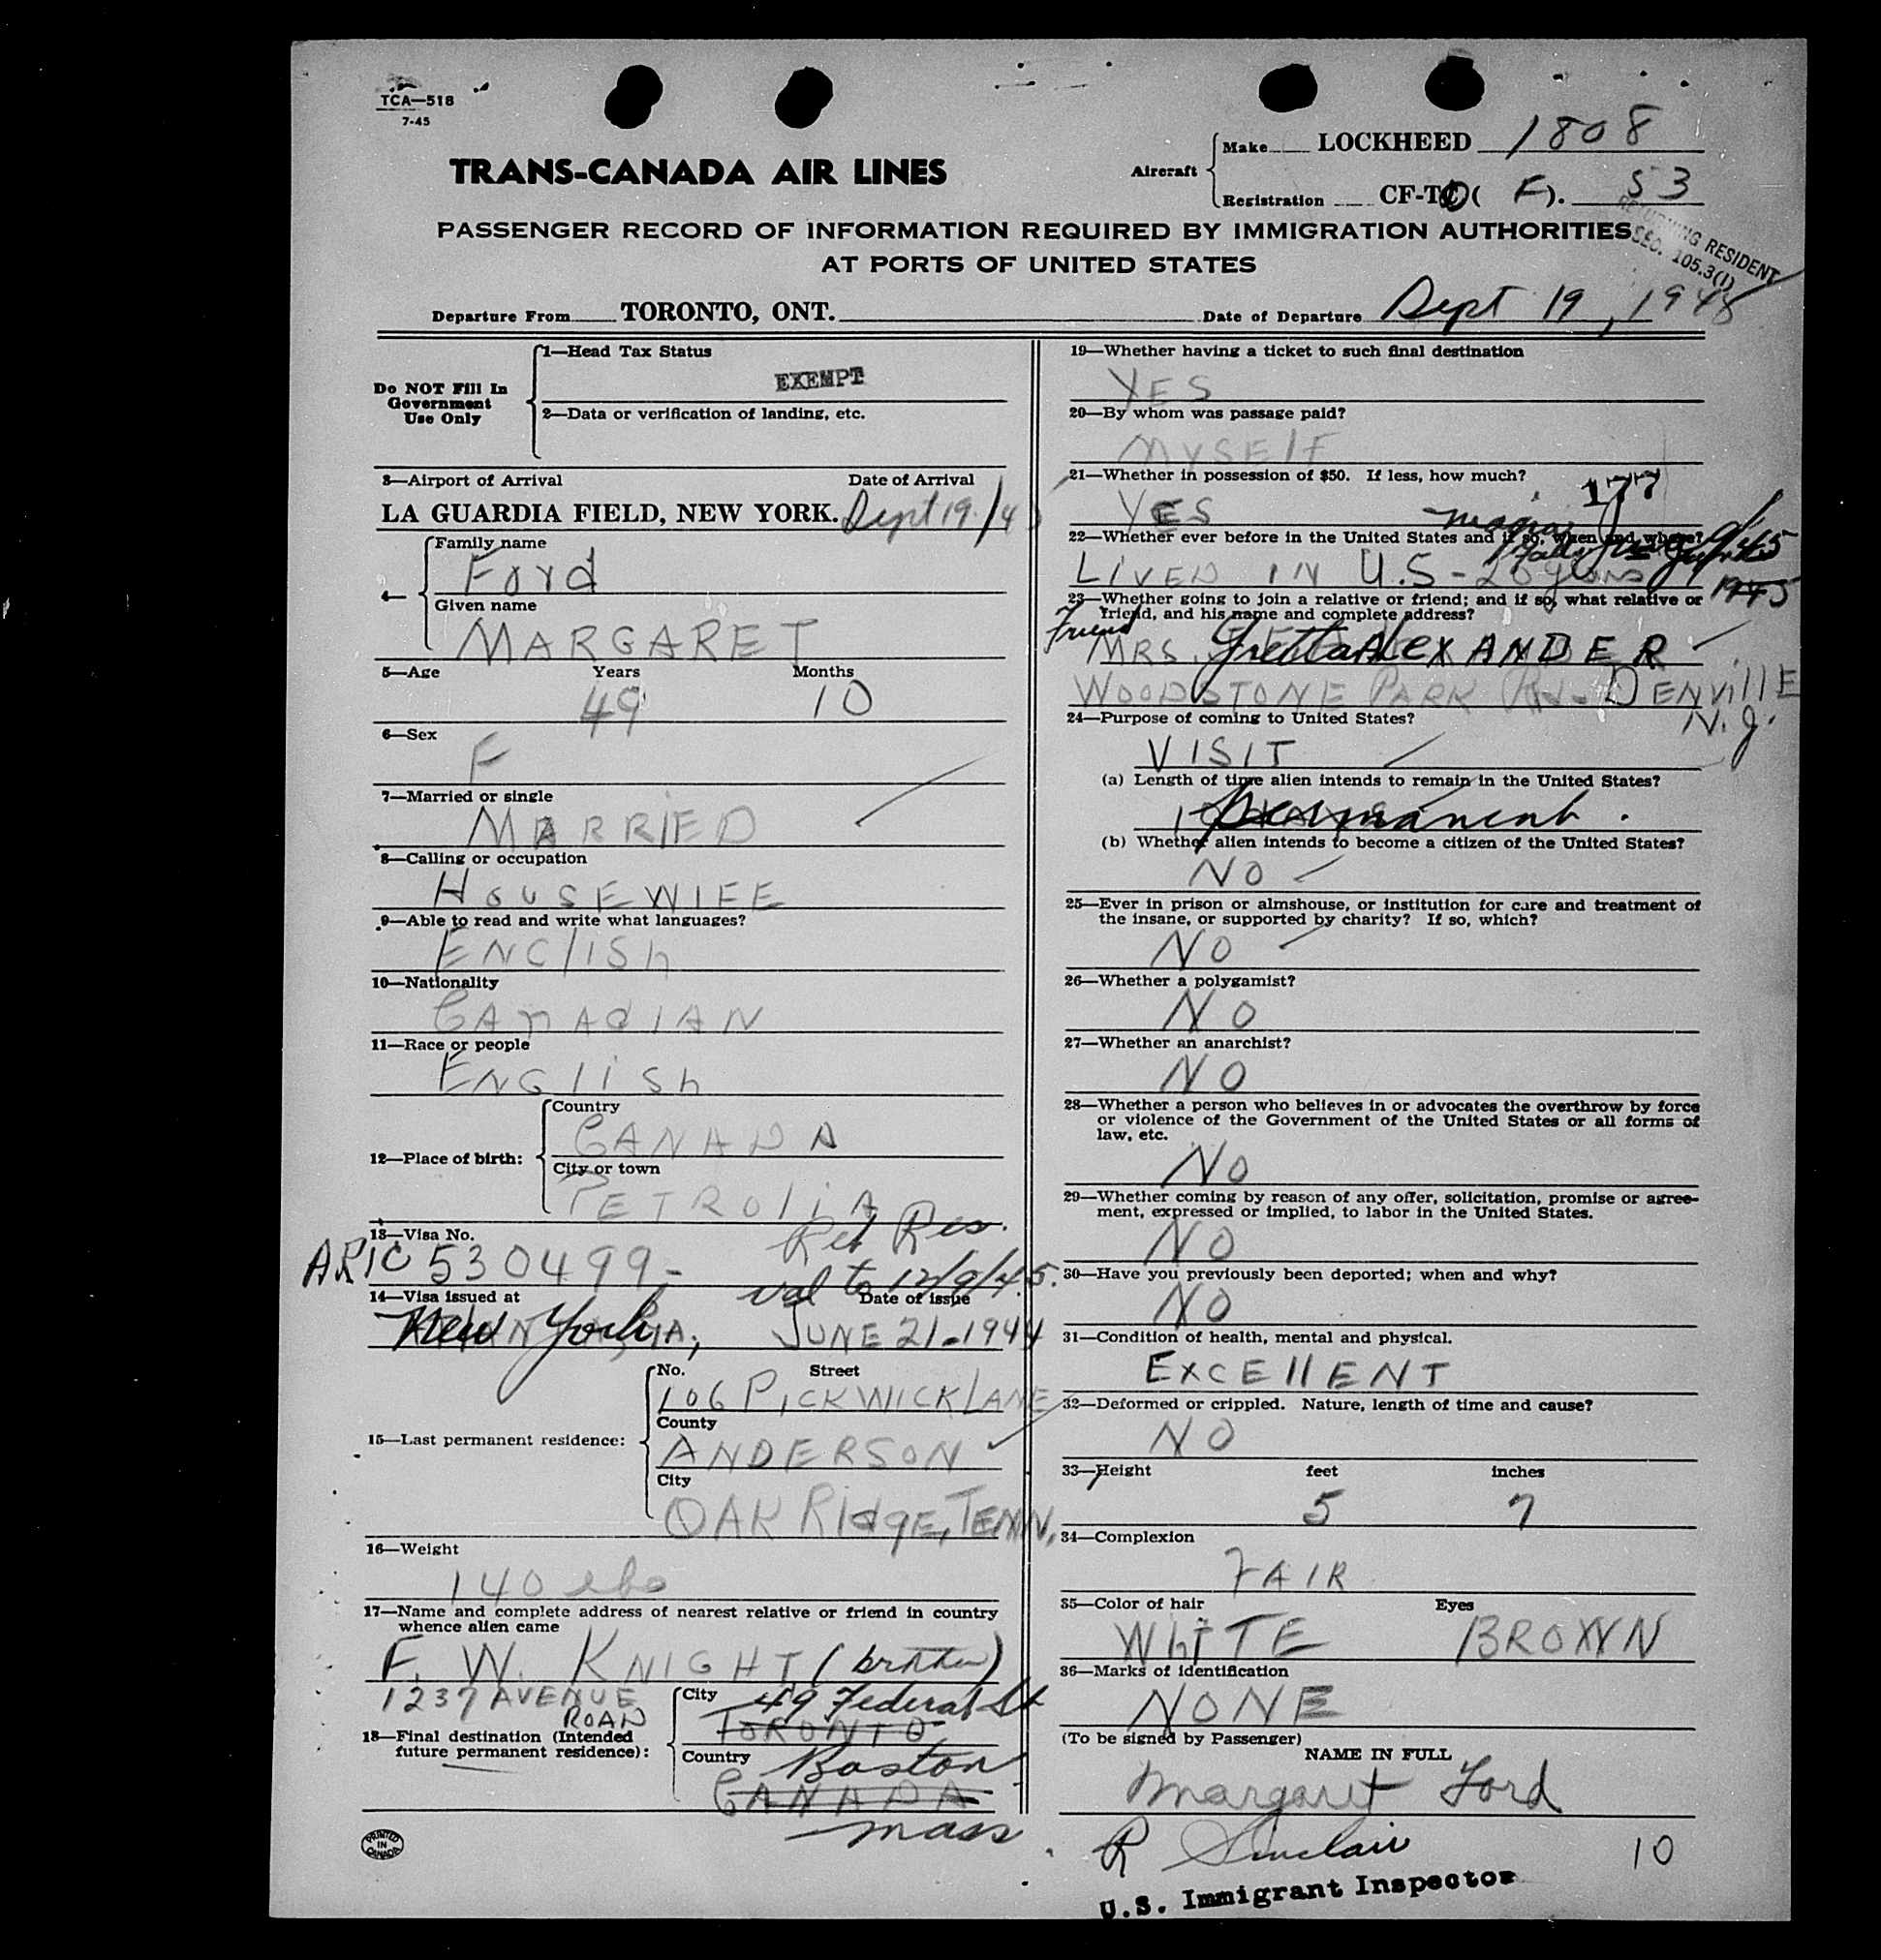 TCA—518
7-45
TRANS-CANADA AIR LINES
Aircraft
Make LOCKHEED 1808
Registration CF-TC ( F). 53
RETURNING RESIDENT
SEC. 105.3(1)
PASSENGER RECORD OF INFORMATION REQUIRED BY IMMIGRATION AUTHORITIES
AT PORTS OF UNITED STATES
Departure From TORONTO, ONT. Date of Departure Sept 19, 1945
Do NOT Fill In
Government
Use Only
1—Head Tax Status
EXEMPT
2—Data or verification of landing, etc.
3—Airport of Arrival Date of Arrival
LA GUARDIA FIELD, NEW YORK. Sept 19/45
4—
Family name
Ford
Given name
MARGARET
5—Age Years Months
49 10
6—Sex
F
7—Married or single
MARRIED
8—Calling or occupation
HOUSEWIFE
9—Able to read and write what languages?
ENGlISh
10—Nationality
CANAdIAN
11—Race or people
ENGlISh
12—Place of birth:
Country
CANADA
City or town
PETROliA
13—Visa No. Ret Res.
ARIC 530499- val to 12/9/45.
14—Visa issued at Date of issue
New York, JUNE 21-1944
15—Last permanent residence:
No. Street
106 PICKWICK LANE
County
ANDERSON
City
OAK RIdgE, TENN,
16—Weight
140 lbs
17—Name and complete address of nearest relative or friend in country
whence alien came
F. W. KNIGHT (brother)
1237 AVENUE
ROAD
18—Final destination (Intended
future permanent residence):
City 49 Federal St
TORONTO
Country Boston
CANADA
mass
PRINTED
IN
CANADA
19—Whether having a ticket to such final destination
YES
20—By whom was passage paid?
MYSElF
21—Whether in possession of $50. If less, how much?
177
YES
22—Whether ever before in the United States and if so, when and where?
9/45
LIVED IN U.S-
1945
23—Whether going to join a relative or friend; and if so, what relative or
friend, and his name and complete address?
Friend
MRS. Gretta AlEXANDER
WOODSTONE PARK RD- DENVillE
N.J.
24—Purpose of coming to United States?
VISIT
(a) Length of time alien intends to remain in the United States?
permanent.
(b) Whether alien intends to become a citizen of the United States?
NO
25—Ever in prison or almshouse, or institution for care and treatment of
the insane, or supported by charity? If so, which?
NO
26—Whether a polygamist?
NO
27—Whether an anarchist?
NO
28—Whether a person who believes in or advocates the overthrow by force
or violence of the Government of the United States or all forms of
law, etc.
NO
29—Whether coming by reason of any offer, solicitation, promise or agree-
ment, expressed or implied, to labor in the United States.
NO
30—Have you previously been deported; when and why?
NO
31—Condition of health, mental and physical.
EXCEllENT
32—Deformed or crippled. Nature, length of time and cause?
NO
33—Height feet inches
5 7
34—Complexion
FAIR
35—Color of hair Eyes
WhiTE BROWN
36—Marks of identification
NONE
(To be signed by Passenger)
NAME IN FULL
Margaret Ford
R Sinclair 10
U.S. Immigrant Inspector